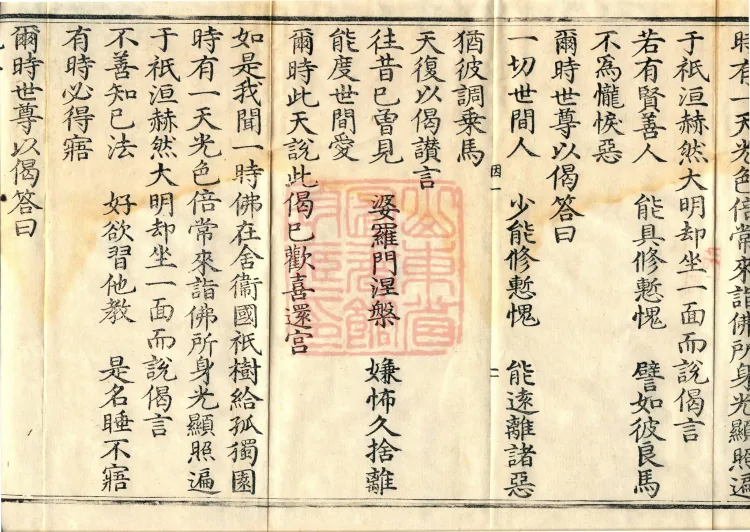 時有一天光色倍常來詣佛所身光顯照遍
于祇洹赫然大明却坐一面而說偈言
若有賢善人　能具修慙愧　譬如彼良馬
不為𢤱悷惡
爾時世尊以偈答曰
一切世間人　少能修慙愧　能遠離諸惡
因一　二
猶彼調乘馬
天復以偈讚言
往昔已曾見　婆羅門涅槃　嫌怖久捨離
能度世間愛
爾時此天說此偈已歡喜還宮
如是我聞一時佛在舍衞國祇樹給孤獨園
時有一天光色倍常來詣佛所身光顯照遍
于祇洹赫然大明却坐一面而說偈言
不善知已法　好欲習他教　是名睡不寤
有時必得寤
爾時世尊以偈答曰
山東省